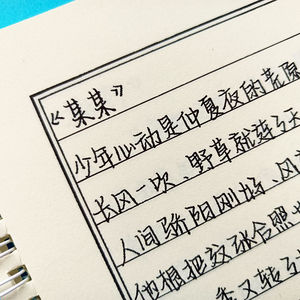 《某某》
少年心动是仲夏夜的荒原
长风一吹、野草就连了天
人间骄阳刚好、风
他想把这张合照